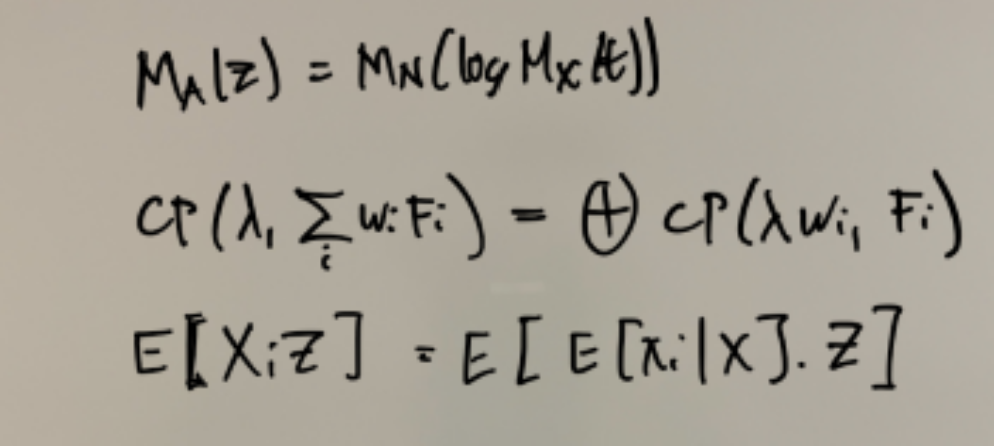 M_A(z) = M_N(log M_X(t))
CP(λ, Σ_i w_i F_i) = ⊕ CP(λw_i, F_i)
E[X_i Z] = E[E[X_i|X]. Z]